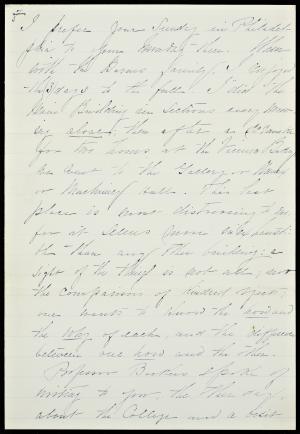 I prefer your Sunday in Philadel-
phia to your Monday there. I was
with the Burns family, & enjoyed
the 3 days to the full. I did the
Main Building in sections every morn
ing alone; then after a
for two hours at the Vienna Bakery
we went to the Gallery or
or Machinery Hall. This last
place is most distressing to me
for it seems more inexhausti-
ble than any other building: a
sight of the things is not all; nor
the comparison of kindred species;
one wants to know the how and
the why of each, and the difference
between one how and the other.
Professor speaks of
writing to you, the other day,
about the College and a visit